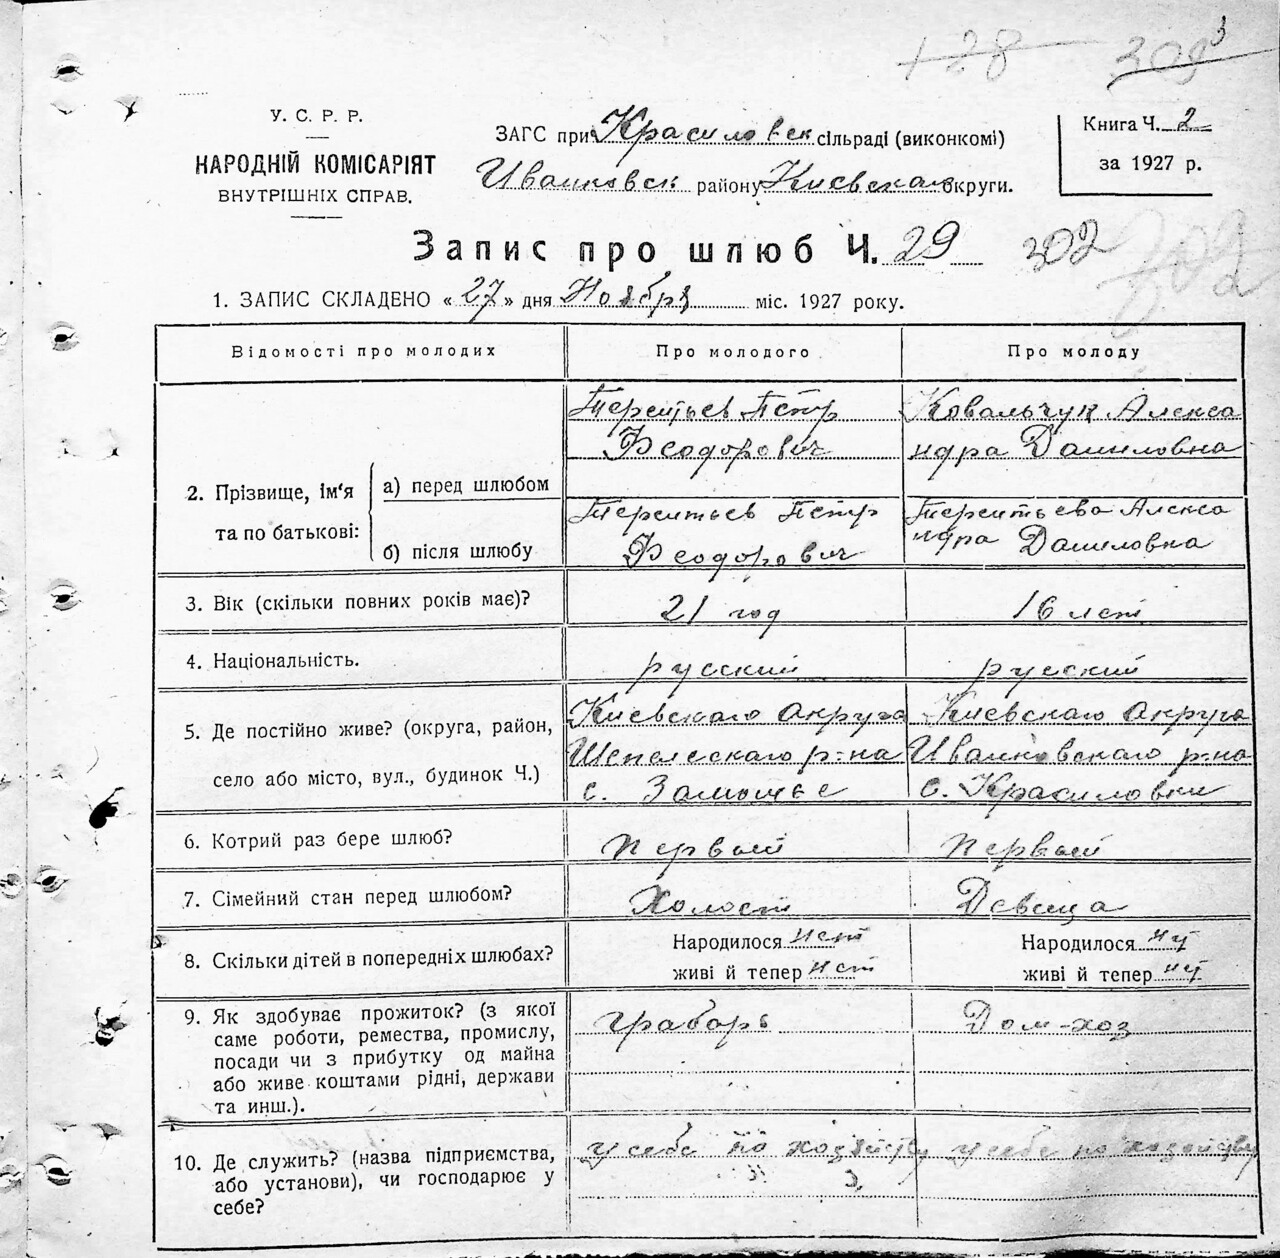 128 303
У. С. Р. Р.
НАРОДНІЙ КОМІСАРІЯТ
ВНУТРІШНІХ СПРАВ.
ЗАГС при Красиловск сільраді (виконкомі)
Иванковск району Киевская округи.
Книга Ч. 2
за 1927 р.
Запис про шлюб Ч. 29 302
302
1. ЗАПИС СКЛАДЕНО « 27 » дня Ноября міс. 1927 року.
Відомості про молодих Про молодого Про молоду
2. Прізвище, ім'я та по батькові:
а) перед шлюбом
Терентьев Петр
Феодорович
Ковальчук Алекса
ндра Даниловна
б) після шлюбу
Терентьев Петр
Феодорович
Терентьева Алекса
ндра Даниловна
3. Вік (скільки повних років має)? 21 год 16 лет
4. Національність. русский русский
5. Де постійно живе? (округа, район,
село або місто, вул., будинок Ч.)
Киевскаго округа
Шепелескаго р-на
с. Замошье
Киевскаго округа
Иванковскаго р-на
с. Красиловки
6. Котрий раз бере шлюб? первый первый
7. Сімейний стан перед шлюбом? Холост Девица
8. Скільки дітей в попередніх шлюбах?
Народилося нет
живі й тепер нет
Народилося
живі й тепер
9. Як здобуває прожиток? (з якої
саме роботи, ремества, промислу,
посади чи з прибутку од майна
або живе коштами рідні, держави
та инш.).
грабарь Дом-хоз
10. Де служить? (назва підприємства,
або установи), чи господарює у
себе?
у себе по хозяйству у себе по хозяйству